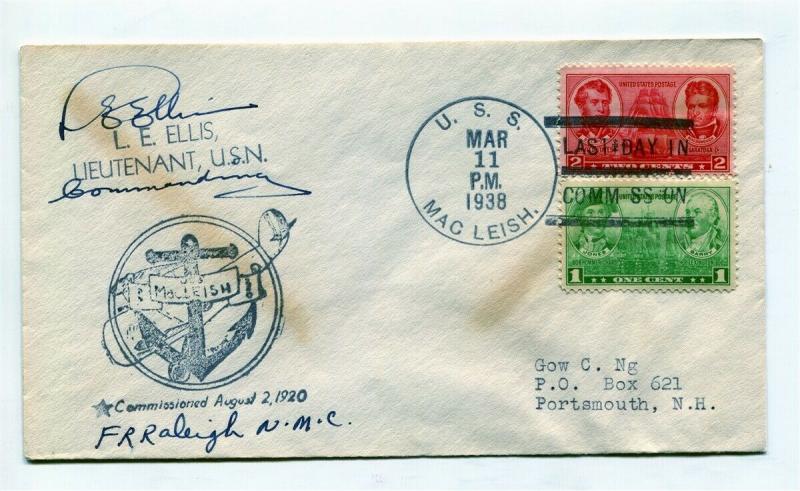 L E Ellis
L. E. ELLIS,
LIEUTENANT, U.S.N.
Commanding
U. S. S.
MAR
11
P.M.
1938
MAC LEISH.
UNITED STATES POSTAGE
SARATOGA
2 TWO CENTS 2
LAST DAY IN
COMM SS ON
UNITED STATES POSTAGE
JONES BARRY
1 ONE CENT 1
MacLEISH
Commissioned August 2, 1920
F R Raleigh N.M.C.
Gow C. Ng
P.O. Box 621
Portsmouth, N.H.